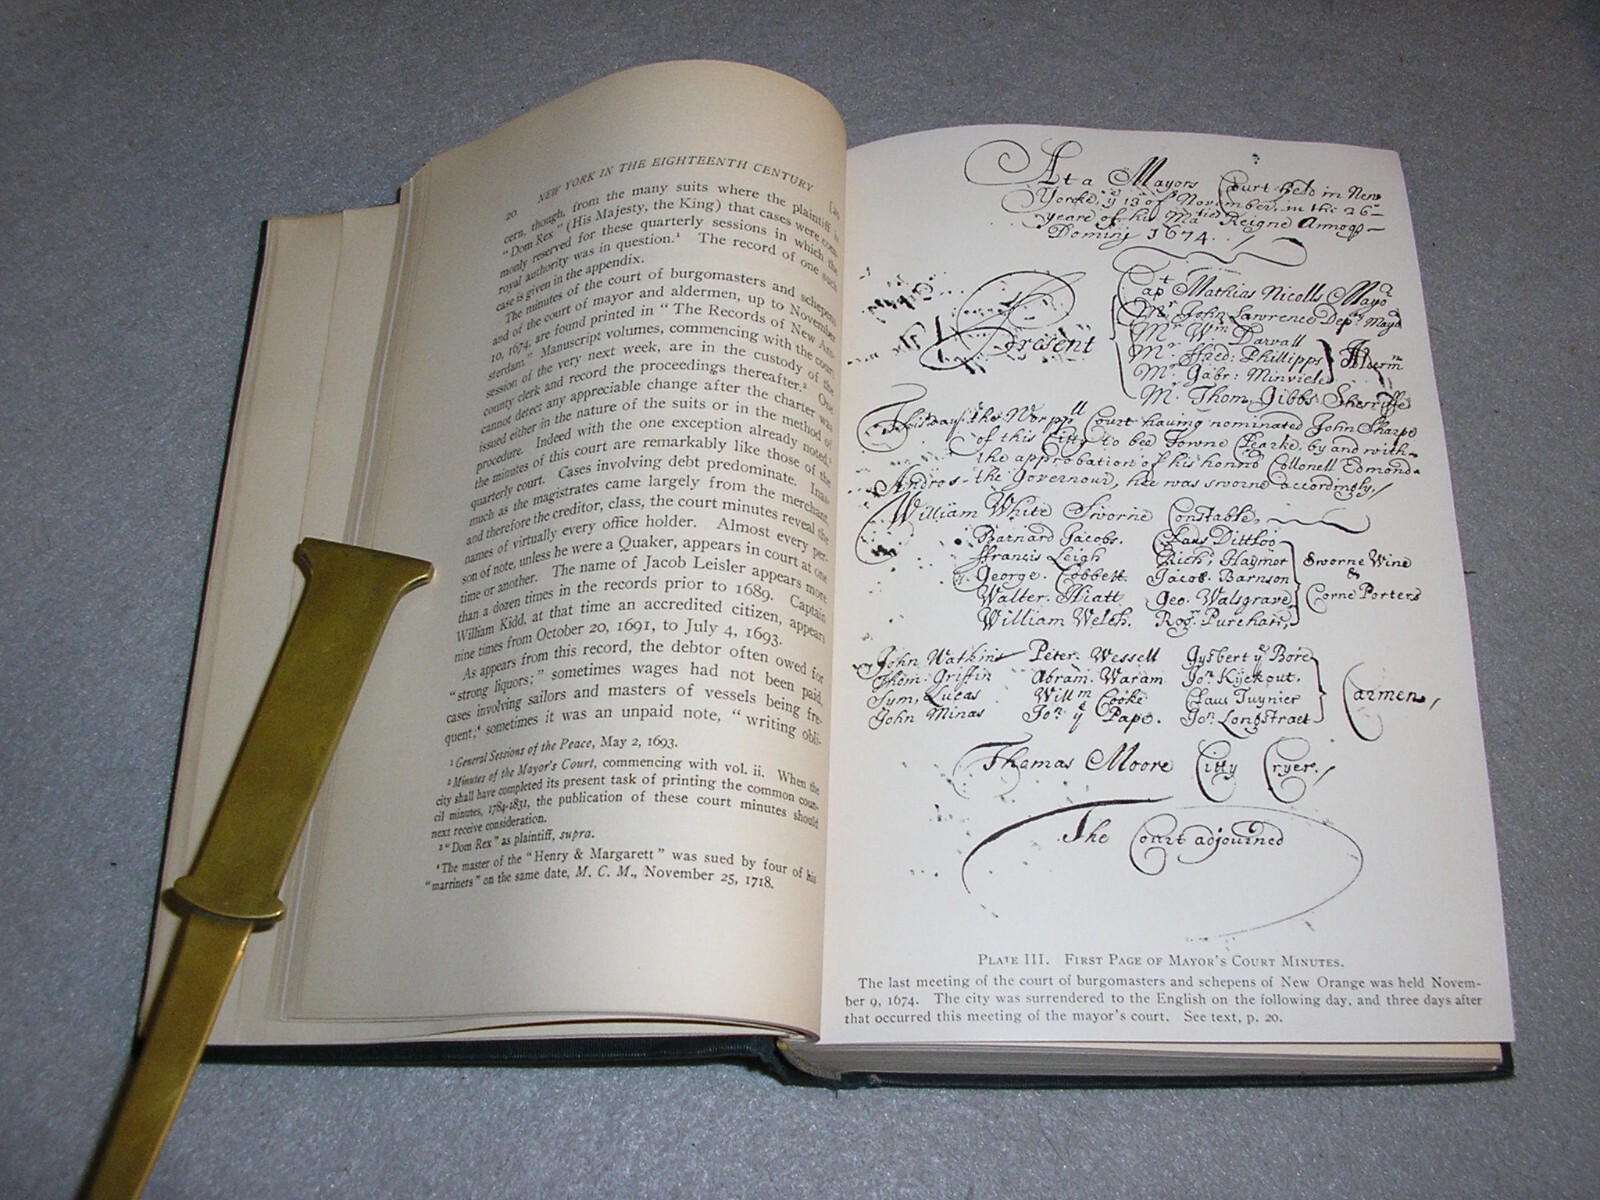 20 NEW YORK IN THE EIGHTEENTH CENTURY [20
cern, though, from the many suits where the plaintiff is
"Dom Rex" (His Majesty, the King) that cases were com-
monly reserved for these quarterly sessions in which the
royal authority was in question.¹ The record of one such
case is given in the appendix.
The minutes of the court of burgomasters and schepens
and of the court of mayor and aldermen, up to November
10, 1674, are found printed in "The Records of New Am-
sterdam." Manuscript volumes, commencing with the court
session of the very next week, are in the custody of the
county clerk and record the proceedings thereafter.² One
cannot detect any appreciable change after the charter was
issued either in the nature of the suits or in the method of
procedure. Indeed with the one exception already noted,³
the minutes of this court are remarkably like those of the
quarterly court. Cases involving debt predominate. Inas-
much as the magistrates came largely from the merchant,
and therefore the creditor, class, the court minutes reveal the
names of virtually every office holder. Almost every per-
son of note, unless he were a Quaker, appears in court at one
time or another. The name of Jacob Leisler appears more
than a dozen times in the records prior to 1689. Captain
William Kidd, at that time an accredited citizen, appears
nine times from October 20, 1691, to July 4, 1693.
As appears from this record, the debtor often owed for
"strong liquors;" sometimes wages had not been paid,
cases involving sailors and masters of vessels being fre-
quent;⁴ sometimes it was an unpaid note, "writing obli-
¹ General Sessions of the Peace, May 2, 1693.
² Minutes of the Mayor's Court, commencing with vol. ii. When the
city shall have completed its present task of printing the common coun-
cil minutes, 1784-1831, the publication of these court minutes should
next receive consideration.
³ "Dom Rex" as plaintiff, supra.
⁴ The master of the "Henry & Margarett" was sued by four of his
"marriners" on the same date, M. C. M., November 25, 1718.
At a Mayors Court held in New
Yorke, ye 13 of November, in the 26
yeare of his Maties Reigne Annoq
Dominj 1674.
Present
Capt Mathias Nicolls Mayor
Mr John Lawrence Depty Mayor
Mr Wm Darvall
Mr ffred: Phillipps
Mr Gabr: Minviele
Alderm
Mr Thom, Gibbs Sherriffe
This day the Worppll Court having nominated John Sharpe
of this Citty to bee Towne Clearke, by and with
the approbation of his honnr Collonell Edmond
Andros the Governour, hee was sworne accordingly,
William White Sworne Constable,
Barnard Jacobs. Claus Dittloo
ffrancis Leigh Rich; Haymor
George. Cobbett Jacob. Barnson
Walter. Hiatt Geo. Walsgrave
William Welch. Rogr. Purchan,
Sworne Wine
&
Corne Porters
John Watkins Peter. Wessell Gysbert ye Bore
Thom: Griffin Abram. Waram Jon Kijckout.
Sym, Lucas Willm Cooke Claus Tuynier
John Minas Jon ye Pape. Jon. Longstraet
Carmen,
Thomas Moore Citty Cryer.
The Court adjourned
PLATE III. FIRST PAGE OF MAYOR'S COURT MINUTES.
The last meeting of the court of burgomasters and schepens of New Orange was held Novem-
ber 9, 1674. The city was surrendered to the English on the following day, and three days after
that occurred this meeting of the mayor's court. See text, p. 20.